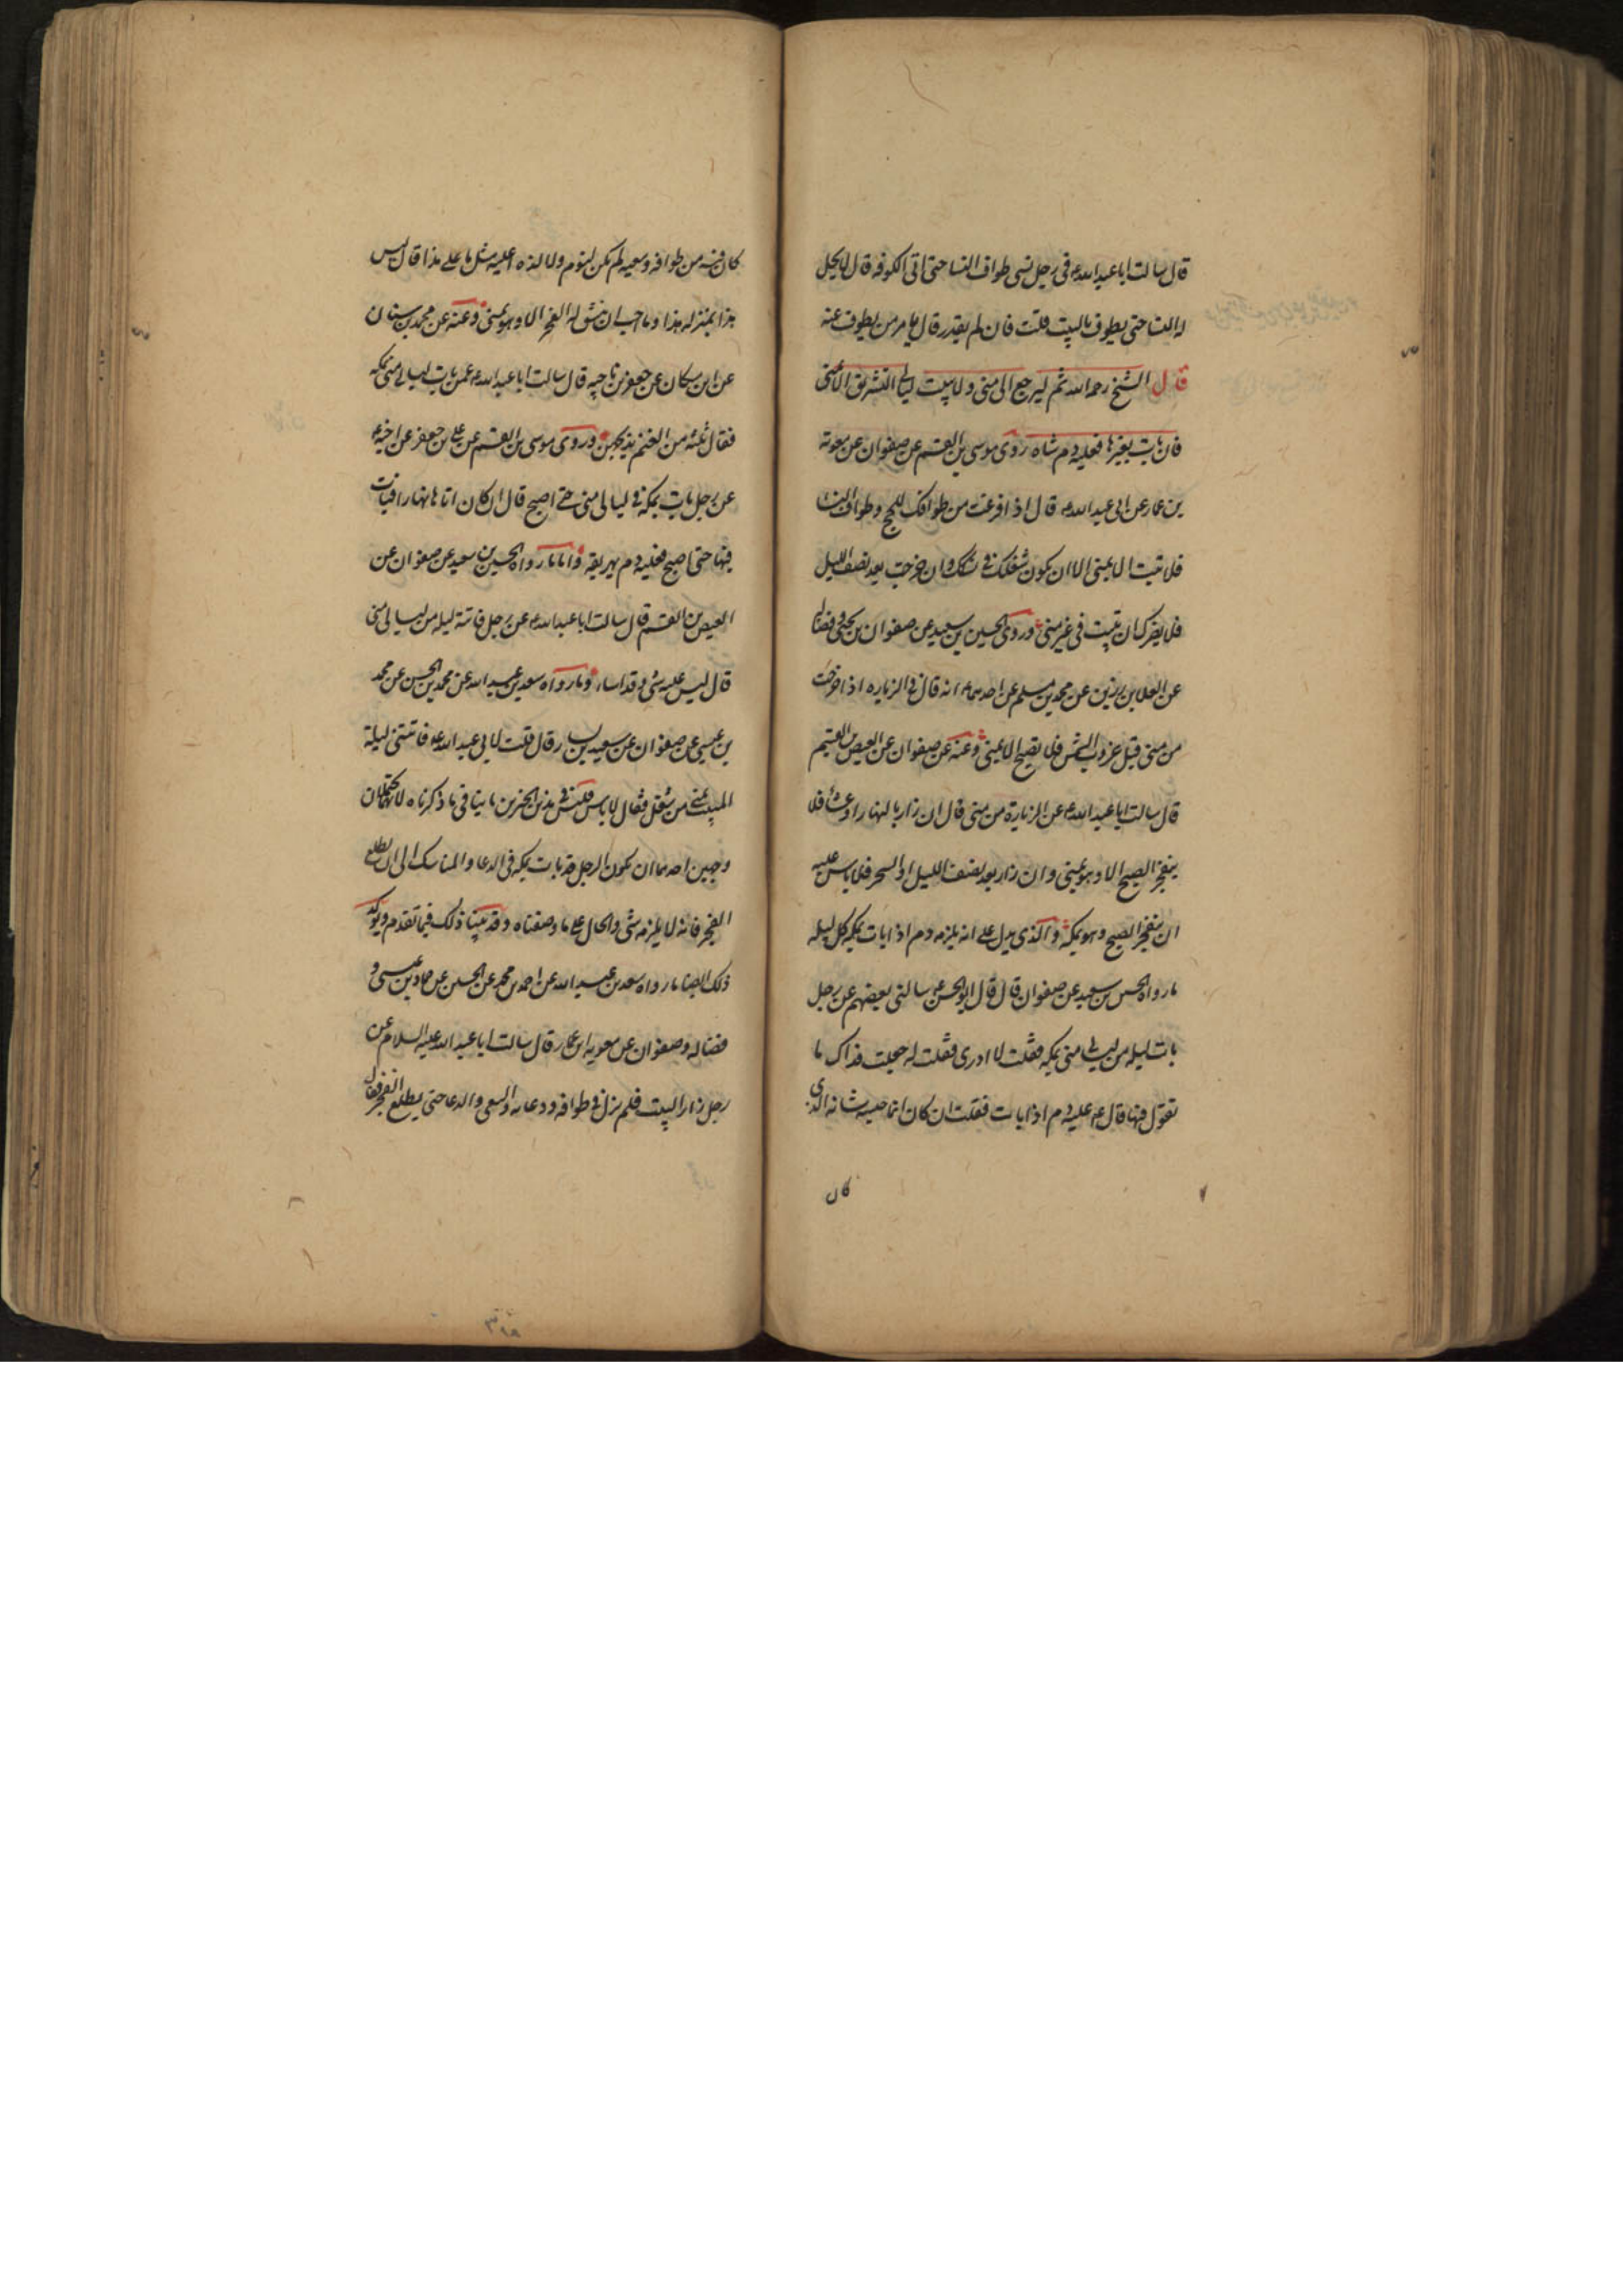 قال سالت ابا عبد الله ع في رجل نسي طواف النسا حتى اتى الكوفه قال لا يحل
له النسا حتى يطوف بالبيت قلت فان لم يقدر قال يامر من يطوف عنه
قال الشيخ رحمه الله ثم ليرجع الى منى ولا يبيت ليالي التشريق الا بمنى
فان بات بغيرها فعليه دم شاه روى موسى بن القسم عن صفوان عن معوية
بن عمار عن ابي عبد الله ع قال اذا فرغت من طوافك للحج وطواف النسا
فلا تبت الا بمنى الا ان يكون شغلك في نسكك وان خرجت بعد نصف الليل
فلا يضرك ان تبيت في غير منى وروى الحسين بن سعيد عن صفوان بن يحيى وفضالة
عن العلا بن رزين عن محمد بن مسلم عن احدهما ع انه قال في الزياره اذا خرجت
من منى قبل غروب الشمس فلا تصبح الا بمنى وعنه عن صفوان عن العيص بن القسم
قال سالت ابا عبد الله ع عن الزيارة من منى قال ان زار بالنهار او عشا فلا
ينفجر الصبح الا وهو بمنى وان زار بعد نصف الليل او السحر فلا باس عليه
ان ينفجر الصبح وهو بمكه والذي يدل على انه يلزمه دم اذا بات بمكه كل ليله
ما رواه الحسين بن سعيد عن صفوان قال قال ابو الحسن ع سالني بعضهم عن رجل
بات ليله من ليالي منى بمكه فقلت لا ادري فقلت له جعلت فداك ما
تقول فيها قال ع عليه دم اذا بات فقلت ان كان انما حبسه شانه الذي
كان
كان فيه من طوافه وسعيه لم يكن لنوم ولا لذه اعليه مثل ما على هذا قال ليس
هذا بمنزله هذا وما احب ان ينشق له الفجر الا وهو بمنى وعنه عن محمد بن سنان
عن ابن مسكان عن جعفر بن ناجيه قال سالت ابا عبد الله ع عمن بات ليالي منى بمكه
فقال ثلثه من الغنم يذبحهن وروى موسى بن القسم عن علي بن جعفر عن اخيه ع
عن رجل بات بمكه في ليالي منى حتى اصبح قال ان كان اتاها نهارا فبات
فيها حتى اصبح فعليه دم يهريقه واما ما رواه الحسين بن سعيد عن صفوان عن
العيص بن القسم قال سالت ابا عبد الله ع عن رجل فاتته ليله من ليالي منى
قال ليس عليه شي وقد اسا وما رواه سعد بن عبد الله عن محمد بن الحسين عن محمد
بن عيسى عن صفوان عن سعيد بن يسار قال قلت لابي عبد الله ع فاتتني ليلة
المبيت بمنى من شغل فقال لا باس فليس في هذين الخبرين ما ينافي ما ذكرناه لانهما يحتملان
وجهين احدهما ان يكون الرجل قد بات بمكه في الدعا والمناسك الى ان يطلع
الفجر فانه لا يلزمه شي والحال على ما وصفناه وقد بينا ذلك فيما تقدم ويوكد
ذلك ايضا ما رواه سعد بن عبد الله عن احمد بن محمد عن الحسين عن حماد بن عيسى و
فضاله وصفوان عن معويه ابن عمار قال سالت ابا عبد الله عليه السلام عن
رجل زار البيت فلم يزل في طوافه ودعائه والسعي والدعا حتى يطلع الفجر فقال